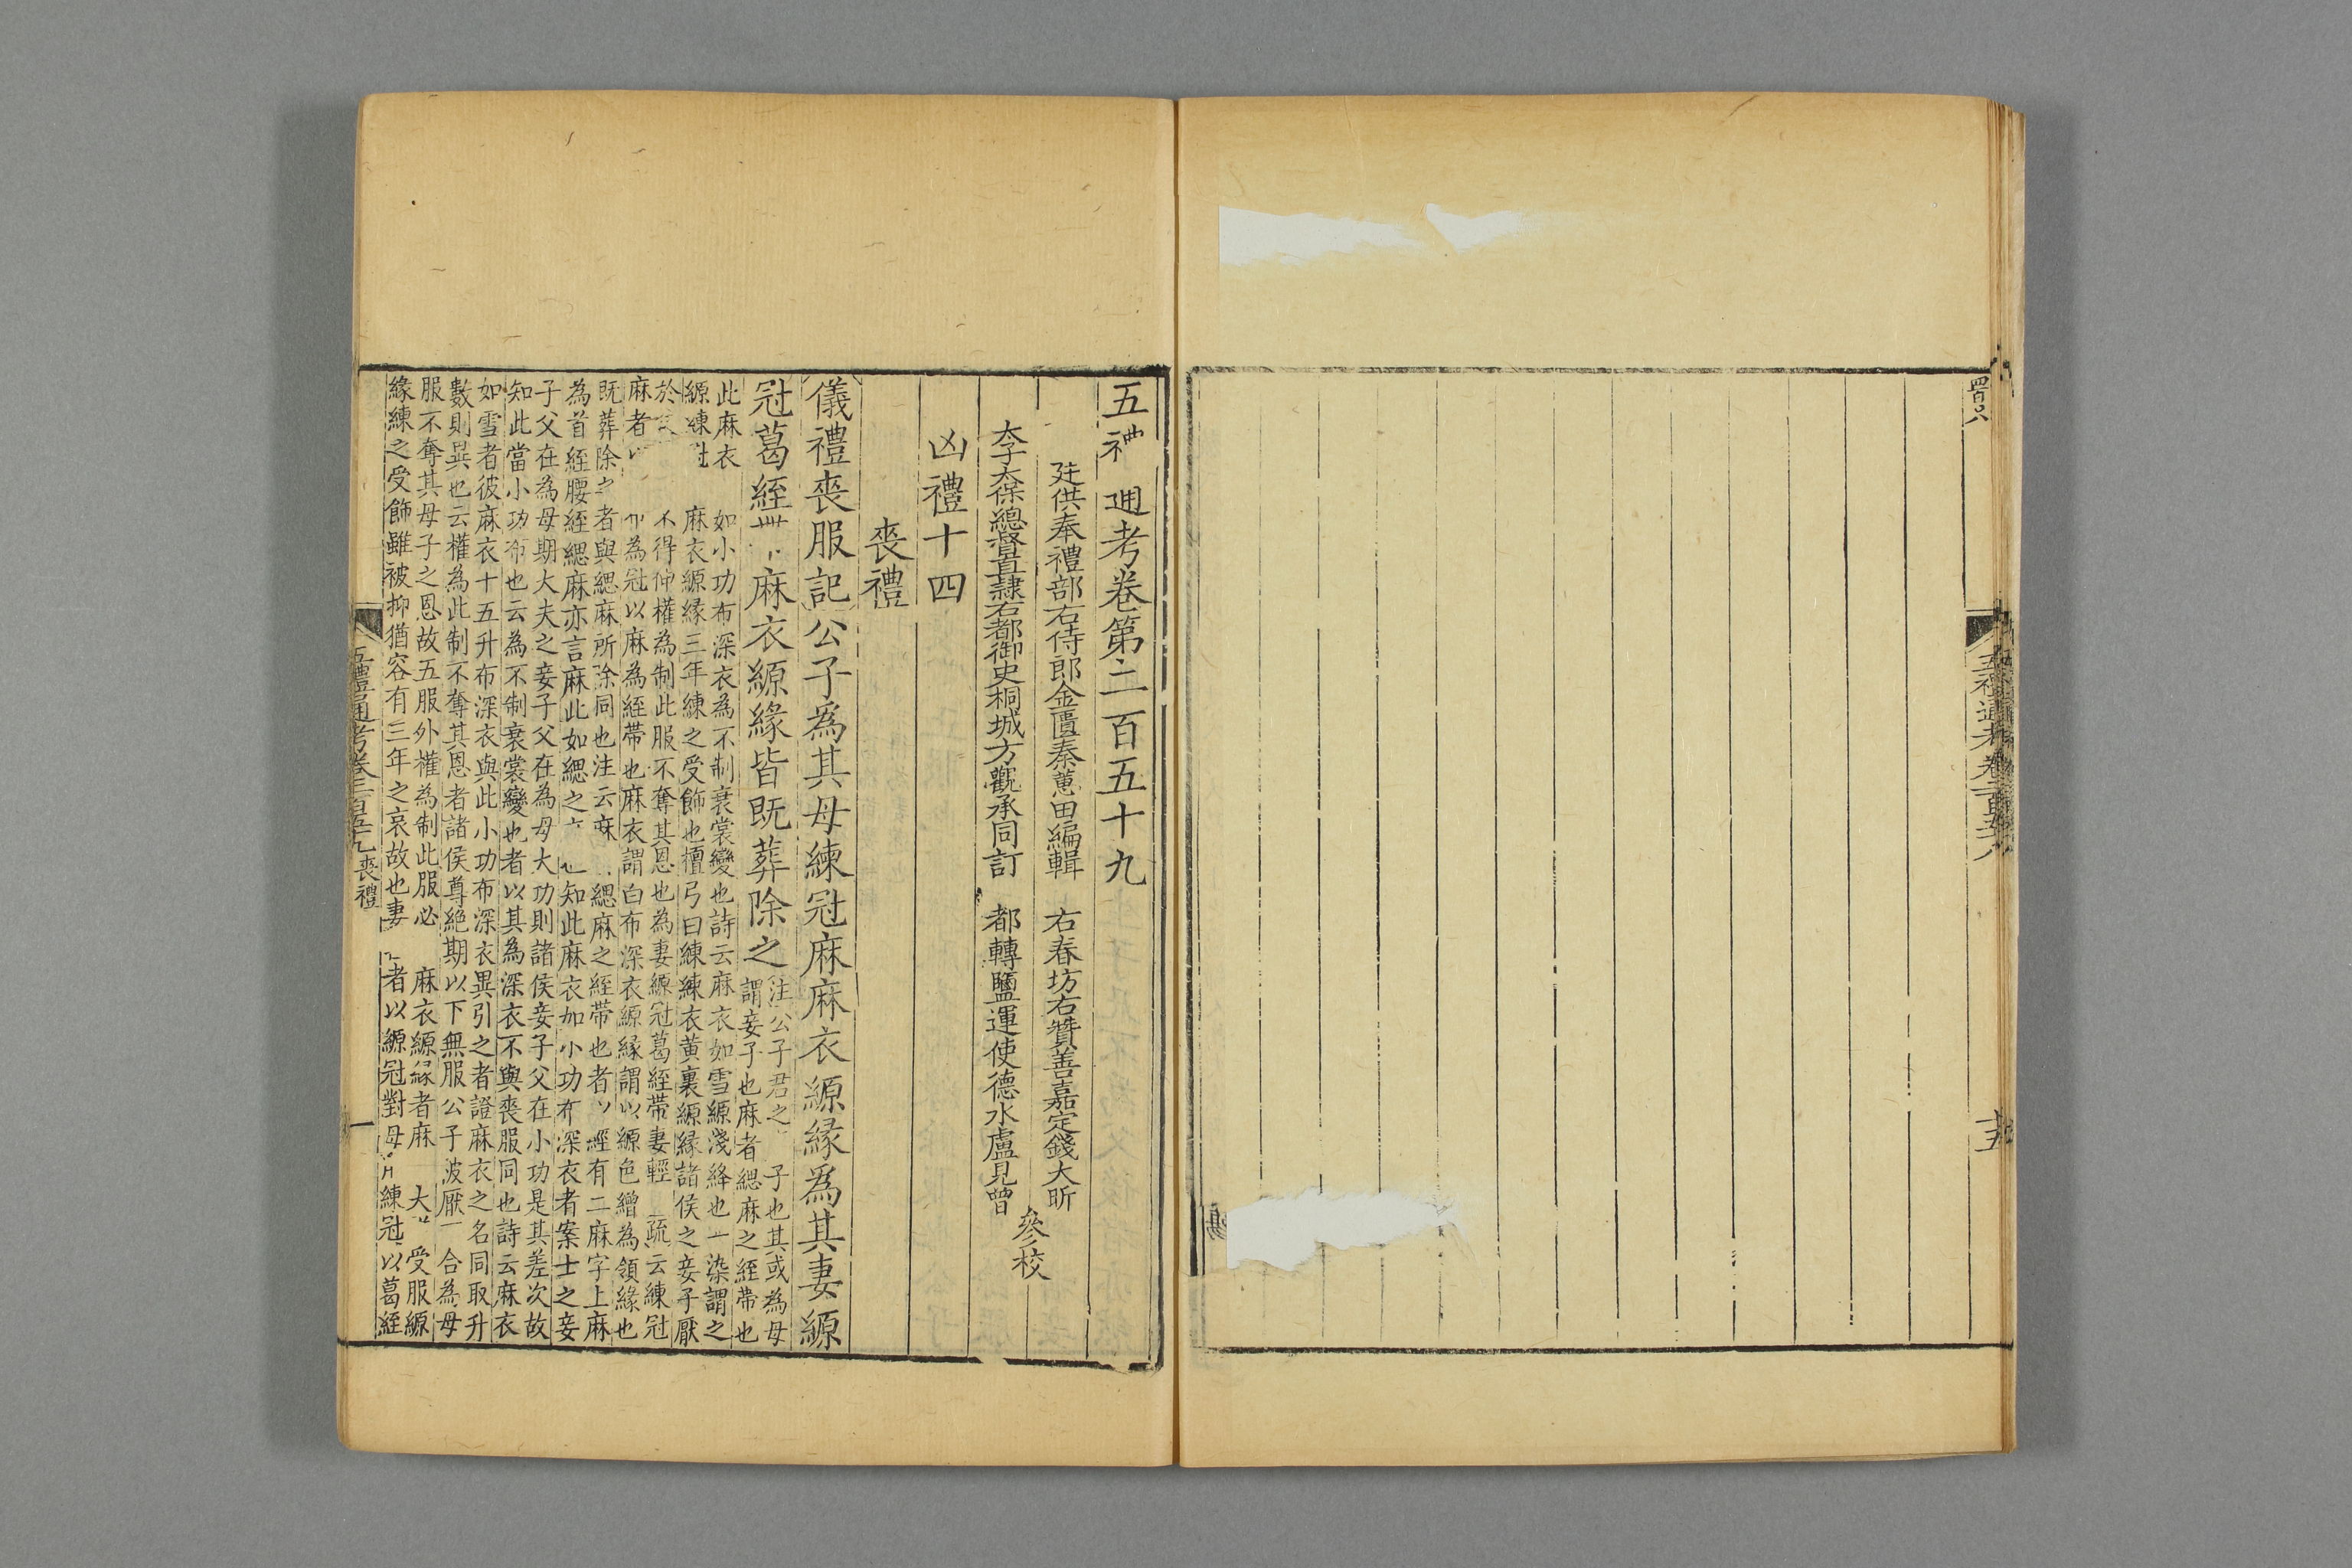 五禮通考卷第二百五十九
廷供奉禮部右侍郎金匱秦蕙田編輯 右春坊右贊善嘉定錢大昕
太子太保總督直隸右都御史桐城方觀承同訂 都轉鹽運使德水盧見曾
參校
凶禮十四
喪禮
儀禮喪服記公子爲其母練冠麻麻衣縓緣爲其妻縓
冠葛絰 麻衣縓緣皆既葬除之
注公子君之 子也其或為母
謂妾子也麻者緦麻之絰帶也
此麻衣 如小功布深衣為不制衰裳變也詩云麻衣如雪縓淺絳也一染謂之
縓練冠 麻衣縓緣三年練之受飾也檀弓曰練練衣黄裏縓緣諸侯之妾子厭
於 不得伸權為制此服不奪其恩也為妻縓冠葛絰帶妻輕 疏云練冠
麻者以 為冠以麻為絰帶也麻衣謂白布深衣縓緣謂以縓色繒為領緣也
既葬除之者與緦麻所除同也注云麻 緦麻之絰帶也者以絰有二麻字上麻
為首絰腰絰緦麻亦言麻此如緦之 也知此麻衣如小功布深衣者案士之妾
子父在為母期大夫之妾子父在為母大功則諸侯妾子父在小功是其差次故
知此當小功布也云為不制衰裳變也者以其為深衣不與喪服同也詩云麻衣
如雪者彼麻衣十五升布深衣與此小功布深衣異引之者證麻衣之名同取升
數則異也云權為此制不奪其恩者諸侯尊絶期以下無服公子被厭 合為母
服不奪其母子之恩故五服外權為制此服必 麻衣縓緣者麻 大 受服縓
緣練之受飾雖被抑猶容有三年之哀故也妻 者以縓冠對母 練冠以葛絰
五禮通考卷二百五十九 喪禮
一
五禮通考卷二百五十八
十五